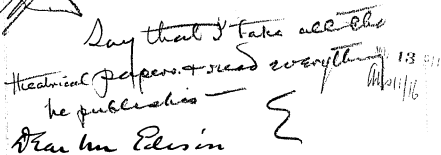 Say that I take all the
theatrical papers & read everything 13
he publishes —
E
Dear Mr Edison